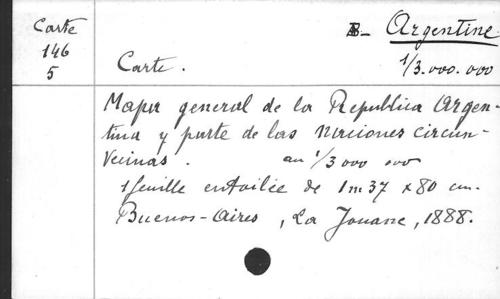 Carte
146
5
B- Argentine
1/3.000.000
Carte.
Mapa general de la Republica Argen-
tina y parte de las Naciones circun-
vecinas. au 1/3 000 000
1 feuille entoilée de 1m37 x 80 cm.
Buenos-Aires, La Jouane, 1888.